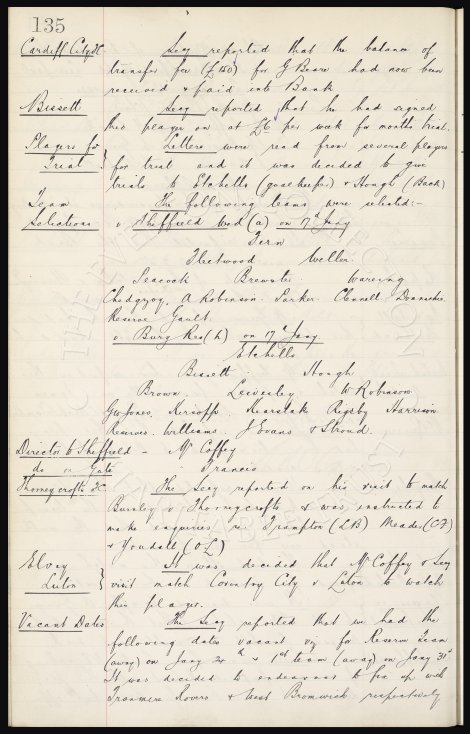 135
Cardiff City FC Secy reported that the balance of
transfer fee (£150) for G Beare had now been
received & paid into Bank
Bissett Secy reported that he had signed
this player on at £6 per week for months trial.
Players for Trial Letters were read from several players
for trial and it was decided to give
trials to Etchells (goalkeeper) & Hough (Back)
Team Selections The following teams were selected:-
v Sheffield Wed (a) on 17th Jany
Fern
Fleetwood Weller
Peacock Brewster Wareing
Chedgzoy, A Robinson. Parker. Clennell. Donnachie.
Reserve Gault.
v. Bury Res (h) on 17th Jany
Etchells
Bissett. Hough
Brown. Leivesley W Robinson
G W Jones. Kirsopp. Rigsby Harrison
Reserves. Williams. J Evans & Stroud.
Director to Sheffield - Mr Coffey
do on Gate Francis
Thorneycrofts FC The Secy reported on his visit to match
Burnley v Thornycrofts & was instructed to
make enquiries re. Frampton (LB) Meades (CF)
& Youdall (OL)
Elvey Luton It was decided that Mr Coffey & Secy
visit match Coventry City v Luton to watch
this player.
Vacant Dates The Secy reported that we had the
following dates vacant viz for Reserve Team
(away) on Jany 24th & 1st team (away) on Jany 31st
It was decided to endeavour to fix up with
Tranmere Rovers & West Bromwich respectively